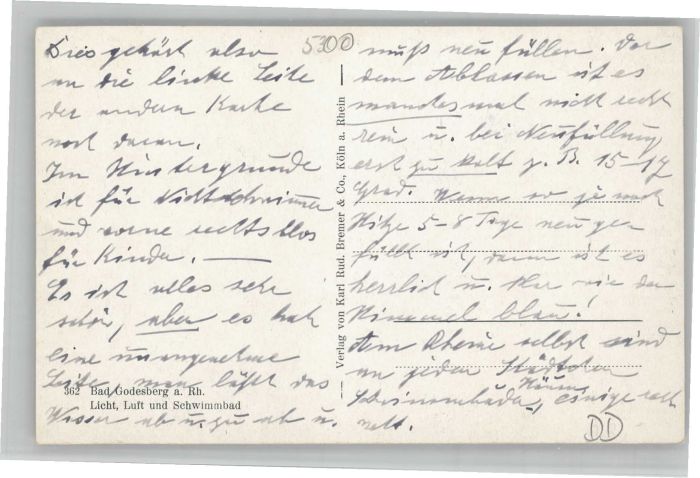 Dies gehört also
an die linke Seite
der andern Karte
noch daran.
Im Hintergrunde
ist für Nichtschwimmer
und vorne rechts blos
für Kinder. —
Es ist alles sehr
schön, aber es hat
eine unangenehme
Seite, man läßt das
Wasser ab u. zu ab u.
362 Bad Godesberg a. Rh.
Licht, Luft und Schwimmbad
Verlag von Karl Rud. Bremer & Co., Köln a. Rhein
5300
muß neu füllen. Vor
dem Ablassen ist es
manches mal nicht recht
rein u. bei Neufüllung
erst zu kalt z. B. 15–17
Grad. Wenn es je nach
Hitze 5–8 Tage neu ge
füllt ist, dann ist es
herrlich u. klar wie der
Himmel blau!
Am Rheine selbst sind
an jedem Städtchen
Schwimmbäder, einige recht
nett.
DD